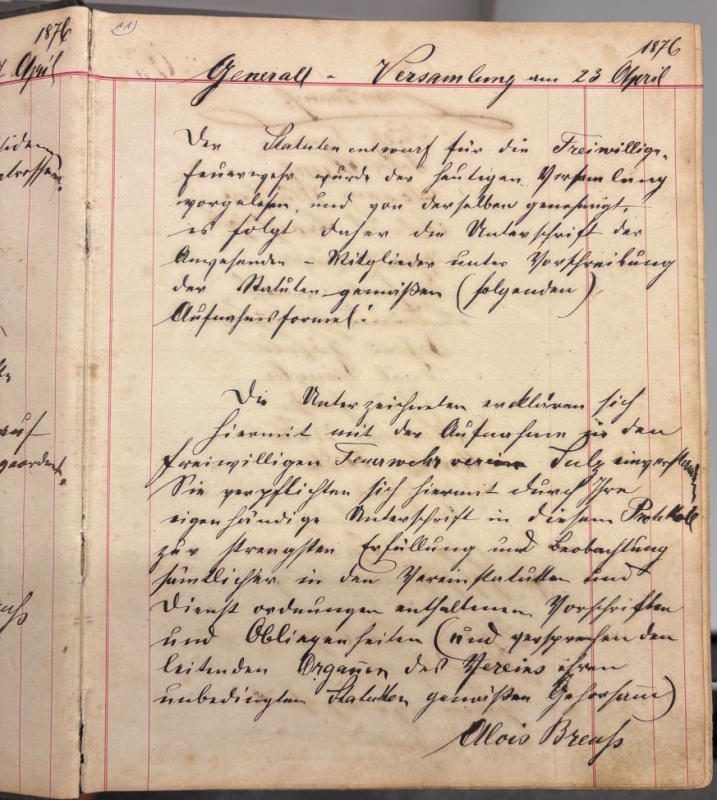 1876
April
11
1876
Generall - Versamlung am 23 April
Der Statuten entwurf für die Freiwillige-
Feuerwehr wurde der heutigen Versamlung
vorgelesen, und von derselben genehmigt,
es folgt daher die Unterschrift der
Anwesenden - Mitglieder unter Vorschreibung
der Statuten gemäßen (folgenden)
Aufnahmsformel:
Die Unterzeichneten erklären sich
hiermit mit der Aufnahme in den
freiwilligen Feuerwehr verein Sulz einverstanden
Sie verpflichten sich hiermit durch Ihre
eigenhändige Unterschrift in diesem Protokoll
zur strengsten Erfüllung und Beobachtung
sämtlicher in den Vereinstatutten und
Dienst ordnungen enthaltenen Vorschriften
und Obliegenheiten (und versprechen den
leitenden Organen des Vereins ihren
unbedingten Statutten gemäßen Gehorsam)
Alois Breuß
auf